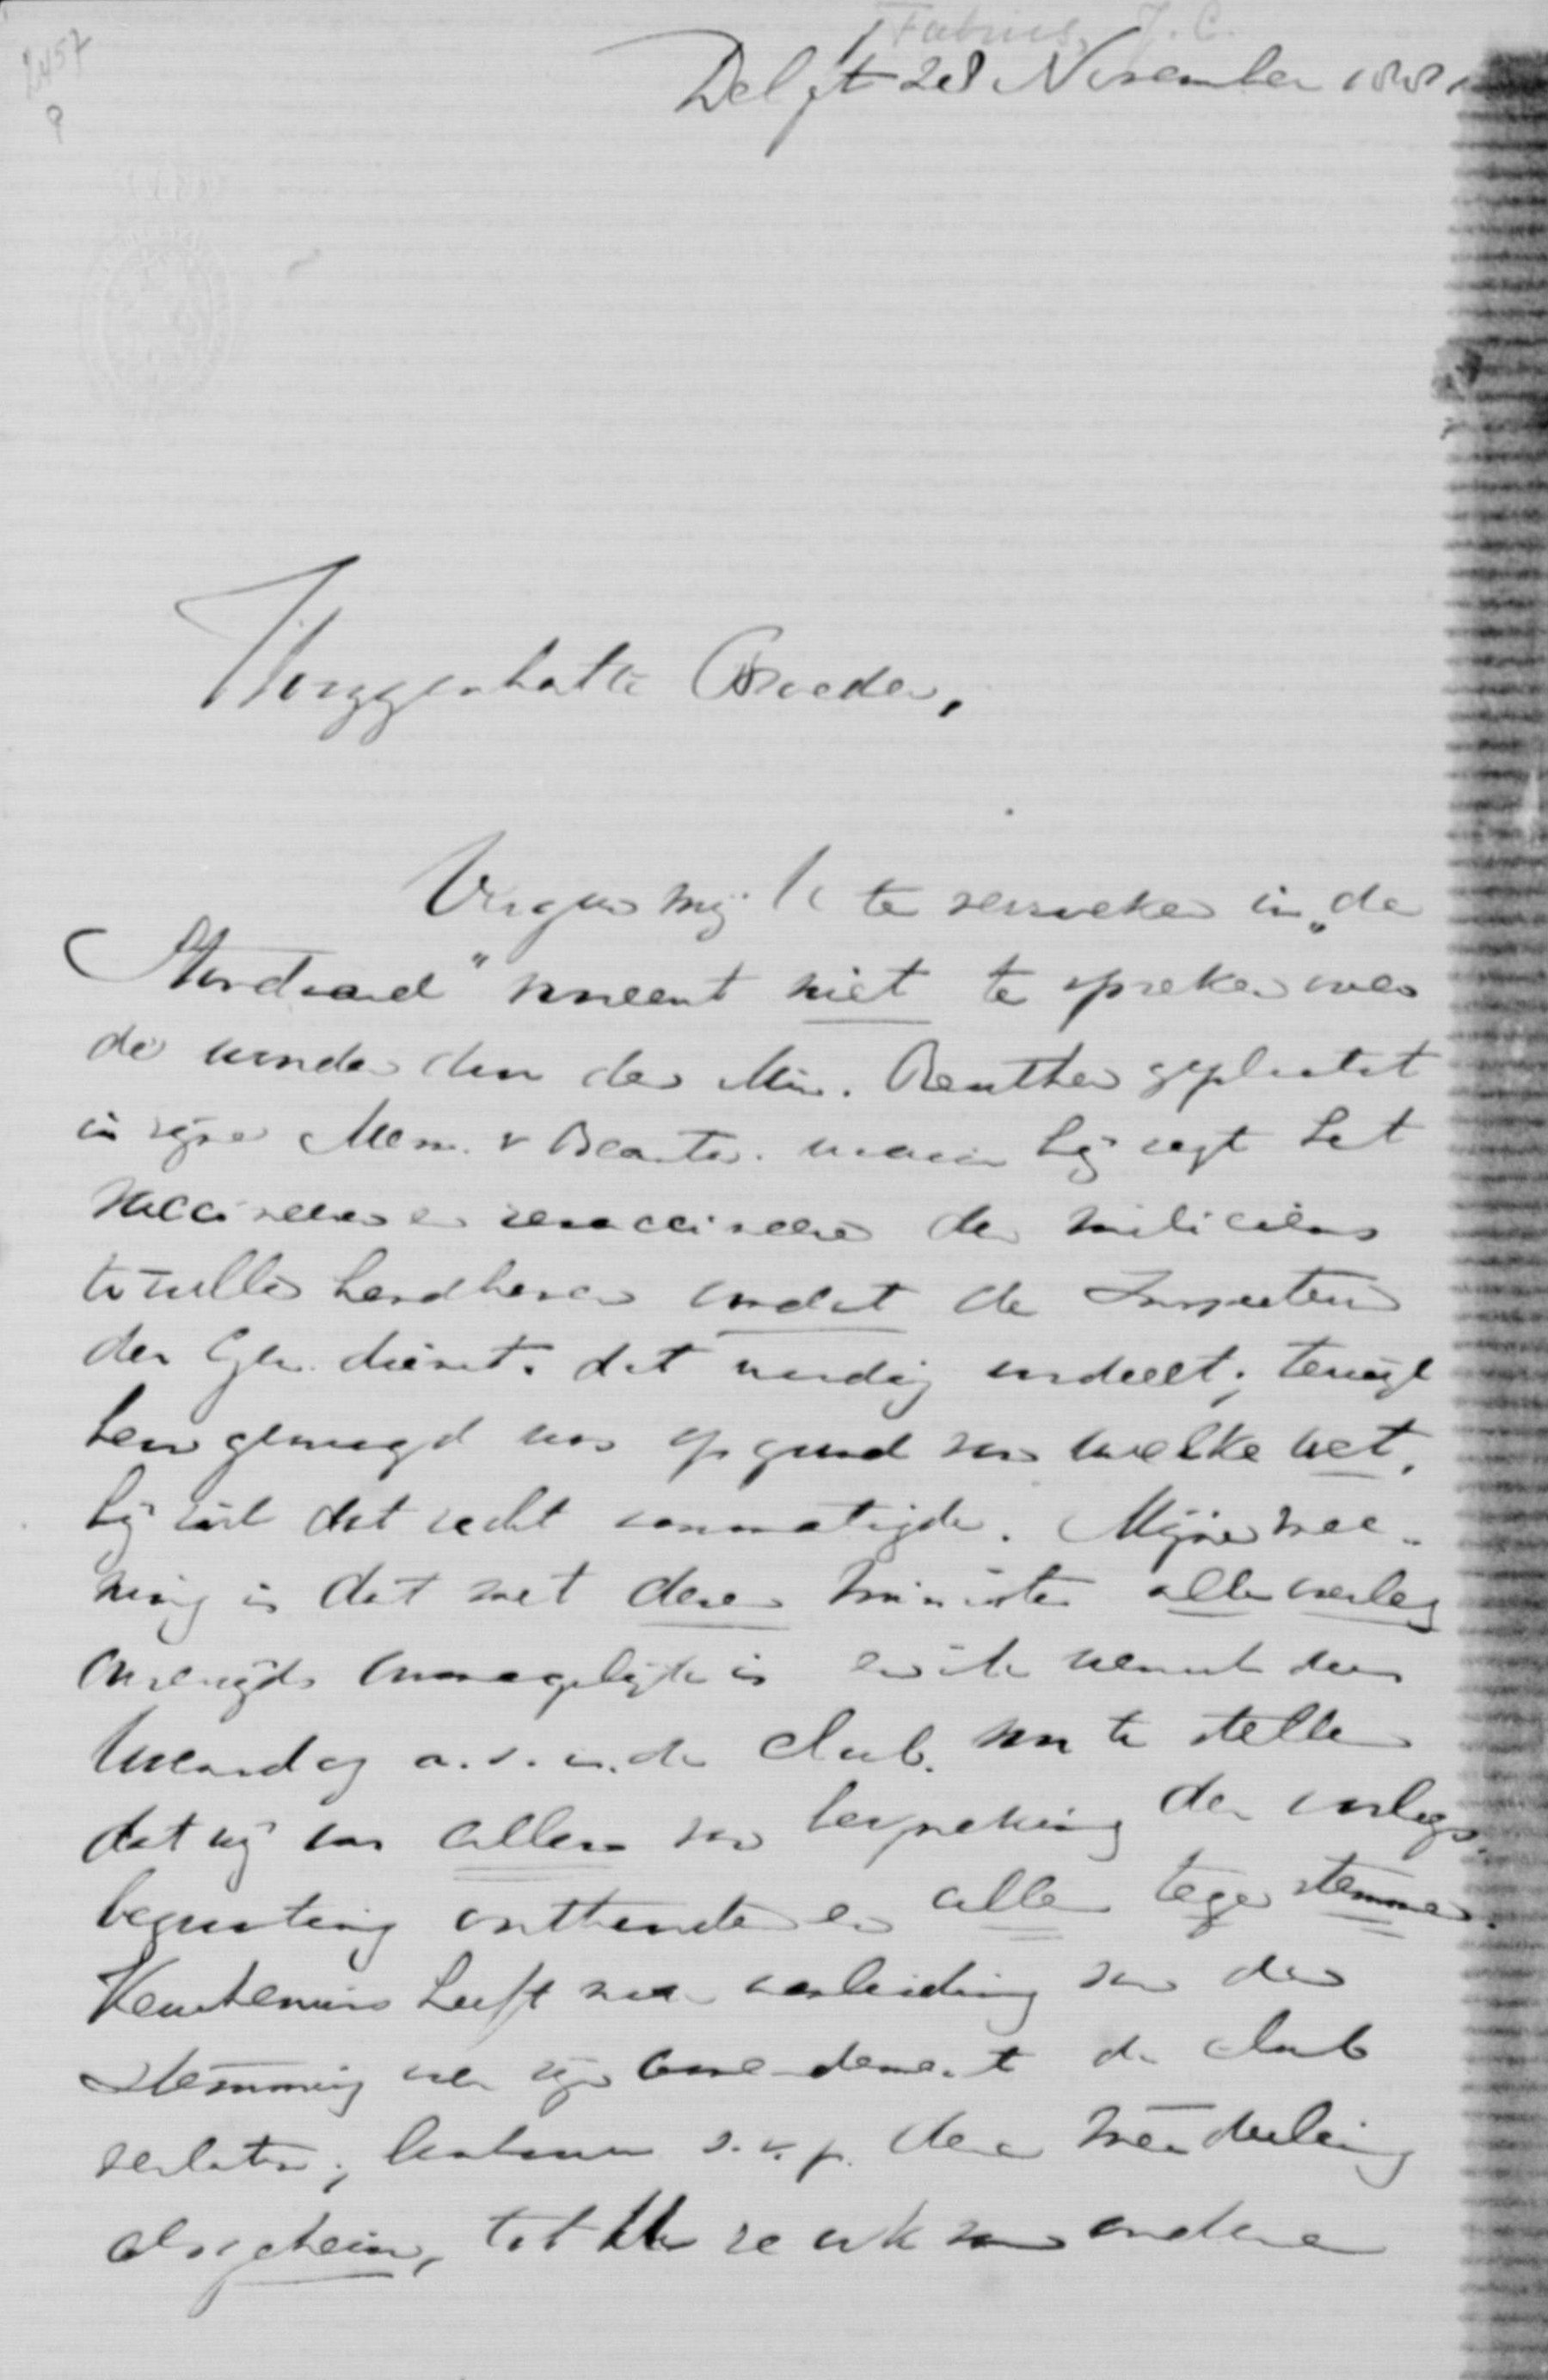 2457
?
Fabius, J. C.
Delft 28 November 1881
Hooggeachte Broeder,
Vergun mij U te verzoeken in „de
Standaard" vooreerst niet te spreken over
de woorden door den Min. Reuther geplaatst
in zijne Mem. v Beantw. waarin hij zegt het
vaccineeren en revaccineeren der miliciens
te zullen handhaven omdat de Inspecteur
der Gen. dienst dat noodig oordeelt; terwijl
hem gevraagd was op grond van welke wet,
hij zich dat recht aanmatigde. Mijne mee-
ning is dat met dezen minister alle overleg
onmogelijk is en ik wensch dan
Maandag a.s. in de Club voor te stellen
dat wij ons allen van bespreking der oorlogs-
begrooting onthouden en allen tegenstemmen.
Keuchenius heeft naar aanleiding van de
stemming over zijn amendement de club
verlaten; beschouw s.v.p. deze mededeeling
als geheim, tot U ze ook van anderen